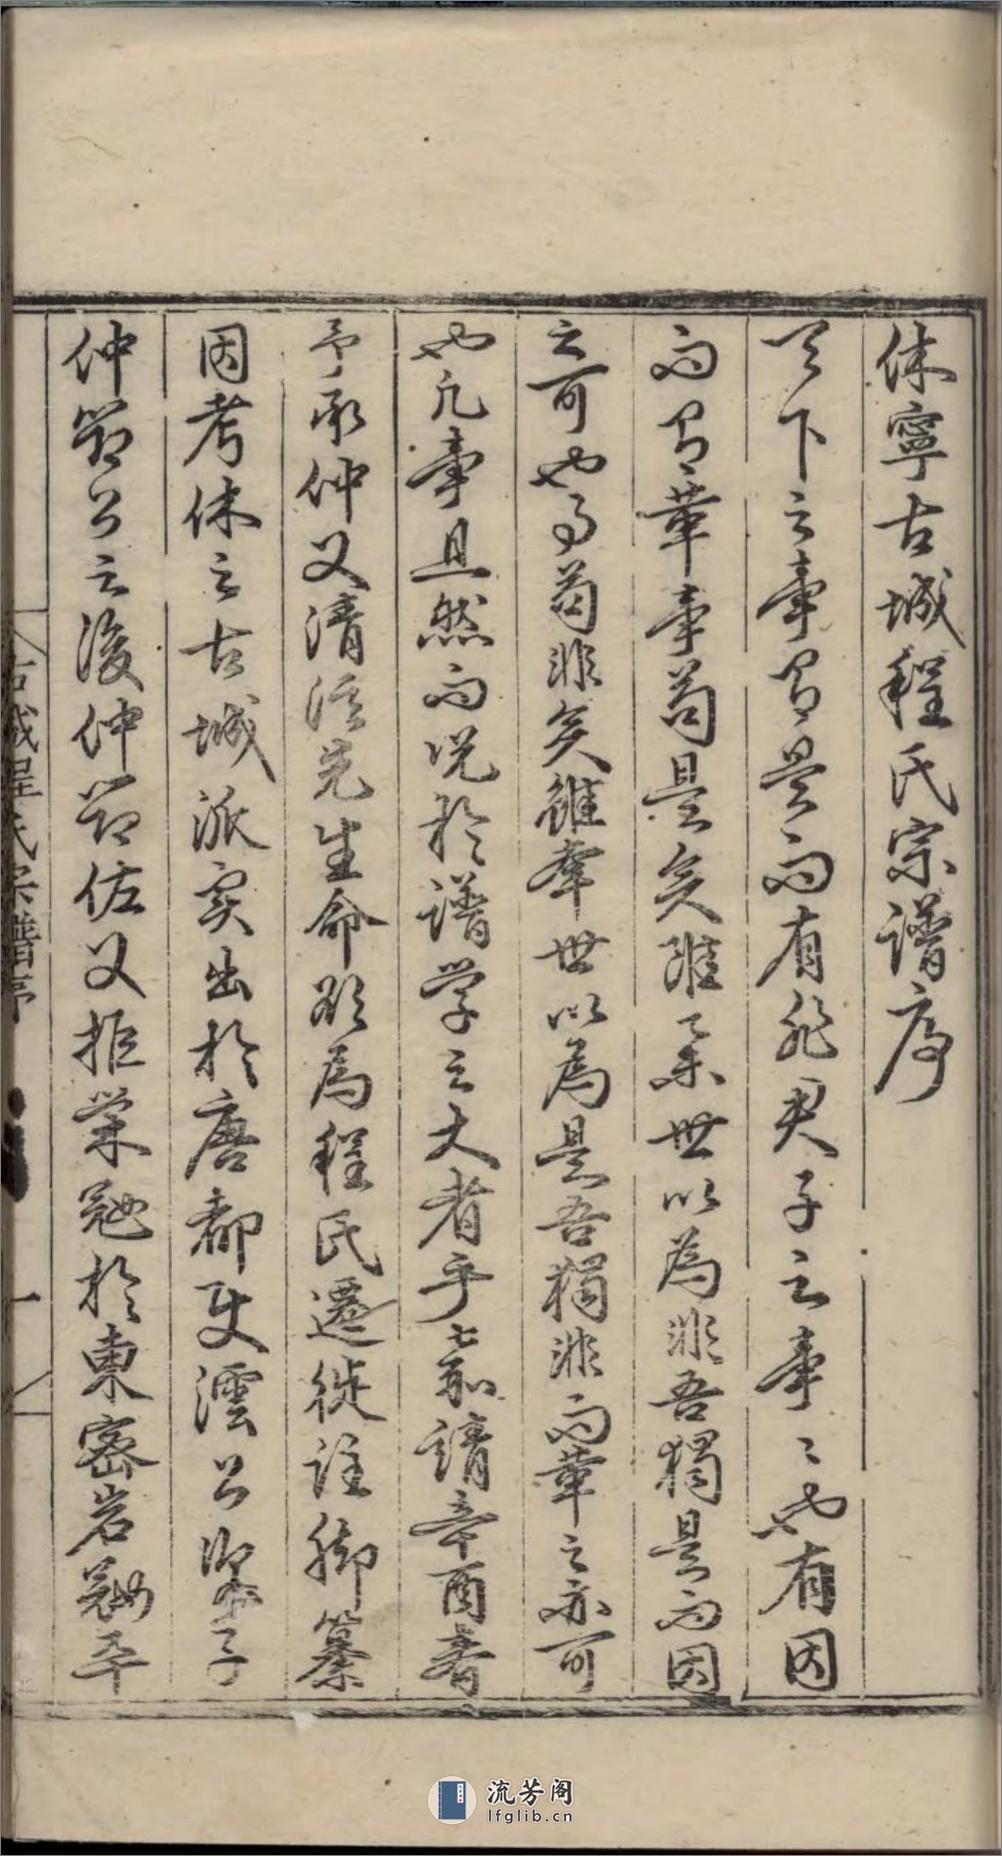 休寧古城程氏宗譜序
天下之事有是而有非君子之事之也有因
而有革事苟是矣雖舉世以為非吾獨是而因
之可也事苟非矣雖舉世以為是吾獨非而革之亦可
也凡事且然而况於譜学之大者乎嘉靖辛酉春
予承仲父清溪先生命欲為程氏遷徙註脚纂
因考休之古城派实出於唐都使澐公子
仲公之後仲佐父拒巢冠於東密岩卒
古城程氏宗譜序
一
流芳阁
lfglib.cn